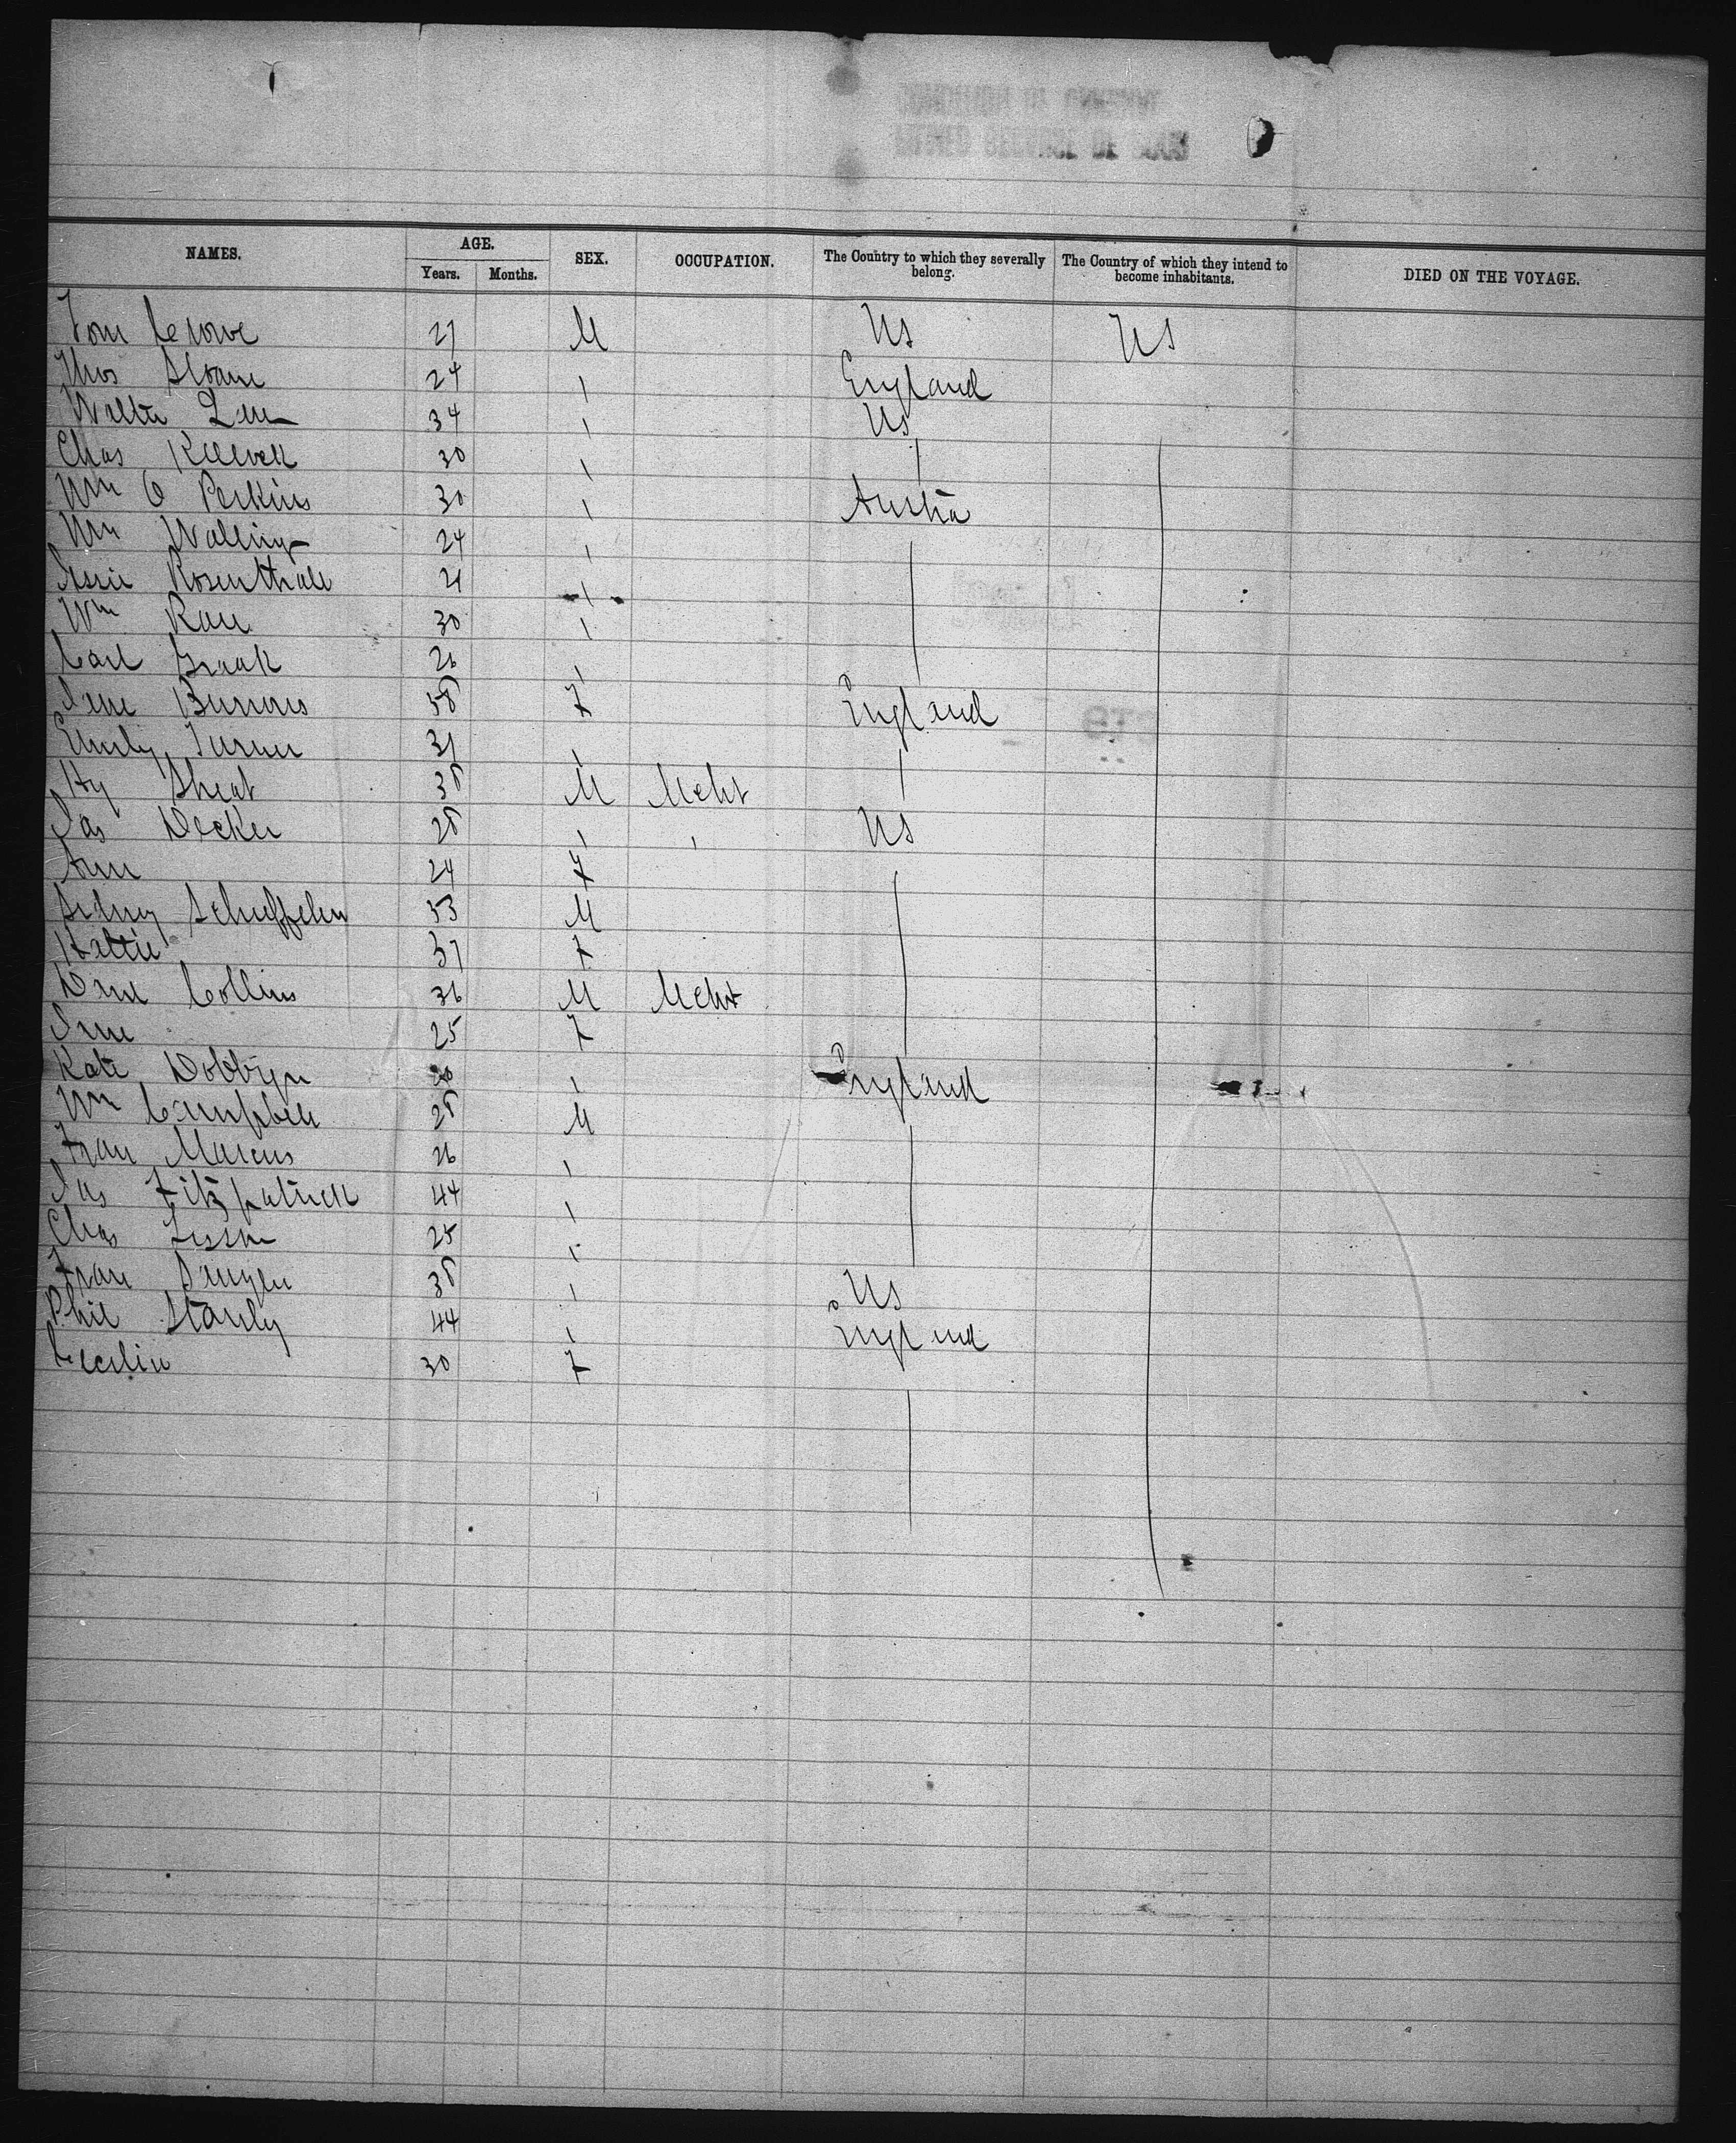 NAMES. AGE. SEX. OCCUPATION. The Country to which they severally belong. The Country of which they intend to become inhabitants. DIED ON THE VOYAGE.
Years. Months.
Tom Crowe 27 M US US
Thos Sloane 24 " England
Walter Lee 34 " US
Chas 30 "
Wm O Perkins 30 " Austria
Wm Walling 24 "
Rosenthall 21 "
Wm Rau 30 "
Carl Graak 26 "
Burrows 58 F England
Emily Turner 31 "
Hy Sheat 38 M Mcht
Jas Decker 28 " " US
Ann 24 F
Sidney Schieffelin 53 M
Hattie 37 F
Collins 36 M Mcht
25 F
Kate Dobbyn 20 " England
Wm Campbell 28 M
Fran Marcus 26 "
Jas Fitzpatrick 44 "
Chas 25 "
Fran 38 " US
Phil Stanly 44 " England
30 F